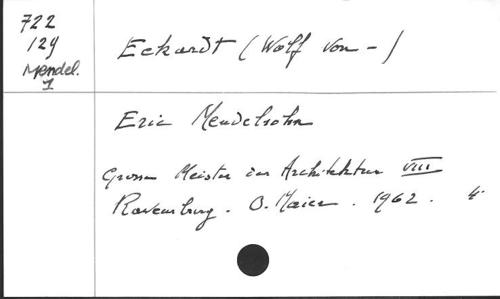 722
129
Mendel.
1
Eckardt (Wolf von -)
Eric Mendelsohn
Grossen Meister der Architektur VIII
Ravensburg. O. Maier. 1962. 4°